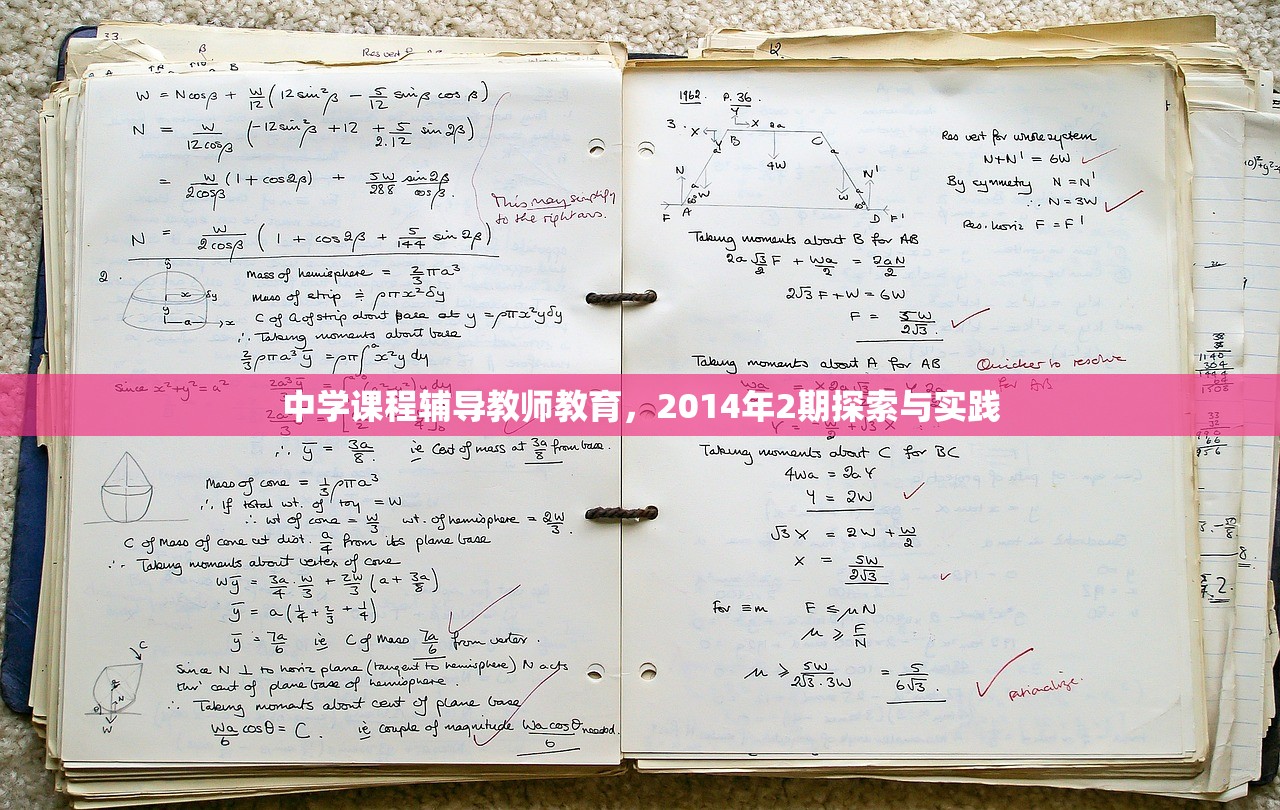 33.
W = N cos β + W/12 (12 sin² β − 5/12 sin β cos β)
N = W/12cosβ (−12 sin² β + 12 + 5/2.12 sin 2β)
= W/2cosβ (1 + cos 2β) + 5W/288 sin 2β/cos β.
This may simplify
to the right ans.
N = W/2cosβ (1 + cos 2β + 5/144 sin 2β)
2.
Mass of hemisphere = 2/3 πa³
Mass of strip ≑ ρπx²δy
C of G of strip about base at y = ρπx²yδy
∴ Taking moments about base
2/3 ρπa³ȳ = ρπ∫x²y dy
Since x²+y²=a²
中学课程辅导教师教育，2014年2期探索与实践
∴ ȳ = 3a/8 ie Cent of mass at 3a/8 from base.
Mass of cone = 1/3 ρπa³
∴ If total wt. of toy = W
∴ wt of cone = W/3 wt. of hemisphere = 2W/3.
C of Mass of cone at dist. a/4 from its plane base
∴ Taking moments about vertex of cone
Wȳ = 3a/4 . W/3 + 2W/3 (a + 3a/8)
ȳ = a(1/4 + 2/3 + 1/4)
ȳ = 7a/6 ie C of Mass 7a/6 from vertex.
Since N ⊥ to horiz plane (tangent to hemisphere) N acts
thro' cent of plane base of hemisphere.
∴ Taking moments about cent of plane base
Wa/6 cos θ = C. ie couple of magnitude Wa cos θ/6 needed.
1962. P. 36.
3.
Res vert for whole system
N+N' = 6W
By symmetry N = N'
∴ N = 3W
Res. horiz F = F'
Taking moments about B for AB
2a √3/2 F + Wa/2 = 2aN/2
2√3 F + W = 6W
F = 5W/2√3.
Taking moments about A for AB
Quicker to resolve
for AB
Taking moments about C for BC
4Wa = 2aY
Y = 2W
√3 X = 2W + W/2
X = 5W/2√3
For ≡m F ≤ μN
μ ≥ F/N
μ ≥ 5W/2√3.3W = 5/6√3.
rationalize.